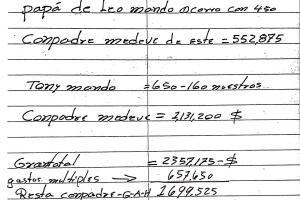 papá de Leo mando Ocorro con 450
Conpadre medeve de este = 552,875
Tony mando =650-160 nuestros
Conpadre medeve = 2,131,200 $
Grantotal = 2357,175-$
gastos multiples → 657,650
Resta conpadre-G-A-H 1699.525